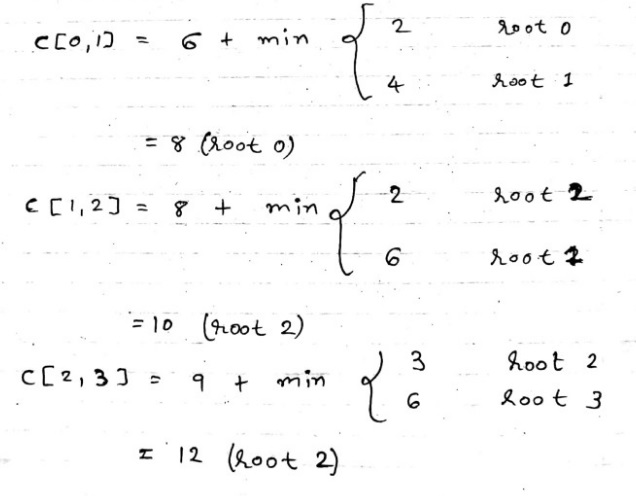 C[0,1] = 6 + min { 2 root 0
4 root 1
= 8 (root 0)
C[1,2] = 8 + min { 2 root 2
6 root 1
= 10 (root 2)
C[2,3] = 9 + min { 3 root 2
6 root 3
= 12 (root 2)